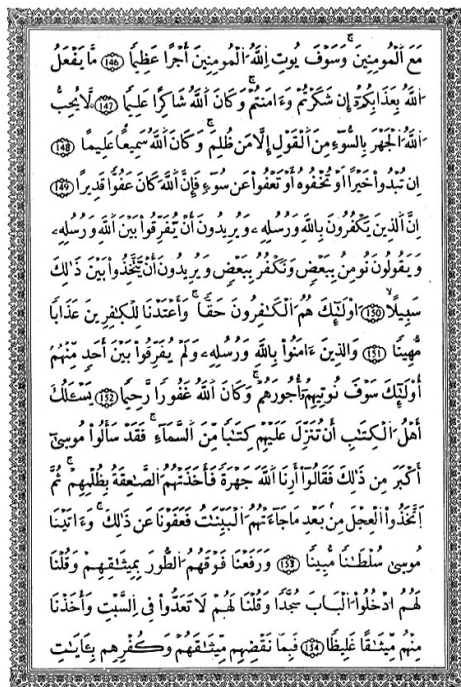 مَعَ اَ۬لْمُومِنِينَۖ وَسَوْفَ يُوتِ اِ۬للَّهُ اُ۬لْمُومِنِينَ أَجْرًا عَظِيمًا 146 مَّا يَفْعَلُ
اُ۬للَّهُ بِعَذَابِكُمُۥٓ إِن شَكَرْتُمْ وَءَامَنتُمْۖ وَكَانَ اَ۬للَّهُ شَاكِرًا عَلِيمًا 147 لَّا يُحِبُّ
اُ۬للَّهُ اُ۬لْجَهْرَ بِالسُّوٓءِ مِنَ اَ۬لْقَوْلِ إِلَّا مَن ظُلِمَۖ وَكَانَ اَ۬للَّهُ سَمِيعًا عَلِيمًا 148
اِن تُبْدُوا خَيْرًا اَوْ تُخْفُوهُ أَوْ تَعْفُوا عَن سُوٓءٍ فَإِنَّ اَ۬للَّهَ كَانَ عَفُوًّا قَدِيرًا 149
اِنَّ اَ۬لذِينَ يَكْفُرُونَ بِاللَّهِ وَرُسُلِهِۦ وَيُرِيدُونَ أَنْ يُّفَرِّقُوا بَيْنَ اَ۬للَّهِ وَرُسُلِهِۦ
وَيَقُولُونَ نُومِنُ بِبَعْضٍ وَنَكْفُرُ بِبَعْضٍ وَيُرِيدُونَ أَنْ يَّتَّخِذُوا بَيْنَ ذَٰلِكَ
سَبِيلًا 150 اُوْلَٰٓئِكَ هُمُ اُ۬لْكَٰفِرُونَ حَقًّاۖ وَأَعْتَدْنَا لِلْكَٰفِرِينَ عَذَابًا
مُّهِينًا 151 وَالذِينَ ءَامَنُوا بِاللَّهِ وَرُسُلِهِۦ وَلَمْ يُفَرِّقُوا بَيْنَ أَحَدٍ مِّنْهُمُۥٓ
أُوْلَٰٓئِكَ سَوْفَ نُوتِيهِمُۥٓ أُجُورَهُمْۖ وَكَانَ اَ۬للَّهُ غَفُورًا رَّحِيمًا 152 يَسْـَٔلُكَ
أَهْلُ اُ۬لْكِتَٰبِ أَن تُنَزِّلَ عَلَيْهِمْ كِتَٰبًا مِّنَ اَ۬لسَّمَآءِۖ فَقَدْ سَأَلُوا مُوسَىٰٓ
أَكْبَرَ مِن ذَٰلِكَ فَقَالُوٓا أَرِنَا اَ۬للَّهَ جَهْرَةً فَأَخَذَتْهُمُ اُ۬لصَّٰعِقَةُ بِظُلْمِهِمْۖ ثُمَّ
اَ۪تَّخَذُوا اُ۬لْعِجْلَ مِنۢ بَعْدِ مَا جَآءَتْهُمُ اُ۬لْبَيِّنَٰتُ فَعَفَوْنَا عَن ذَٰلِكَۖ وَءَاتَيْنَا
مُوسَىٰ سُلْطَٰنًا مُّبِينًا 153 وَرَفَعْنَا فَوْقَهُمُ اُ۬لطُّورَ بِمِيثَٰقِهِمْ وَقُلْنَا
لَهُمُ اُ۟دْخُلُوا اُ۬لْبَابَ سُجَّدًا وَقُلْنَا لَهُمْ لَا تَعَدُّوا فِي اِ۬لسَّبْتِ وَأَخَذْنَا
مِنْهُم مِّيثَٰقًا غَلِيظًا 154 فَبِمَا نَقْضِهِم مِّيثَٰقَهُمْ وَكُفْرِهِم بِـَٔايَٰتِ